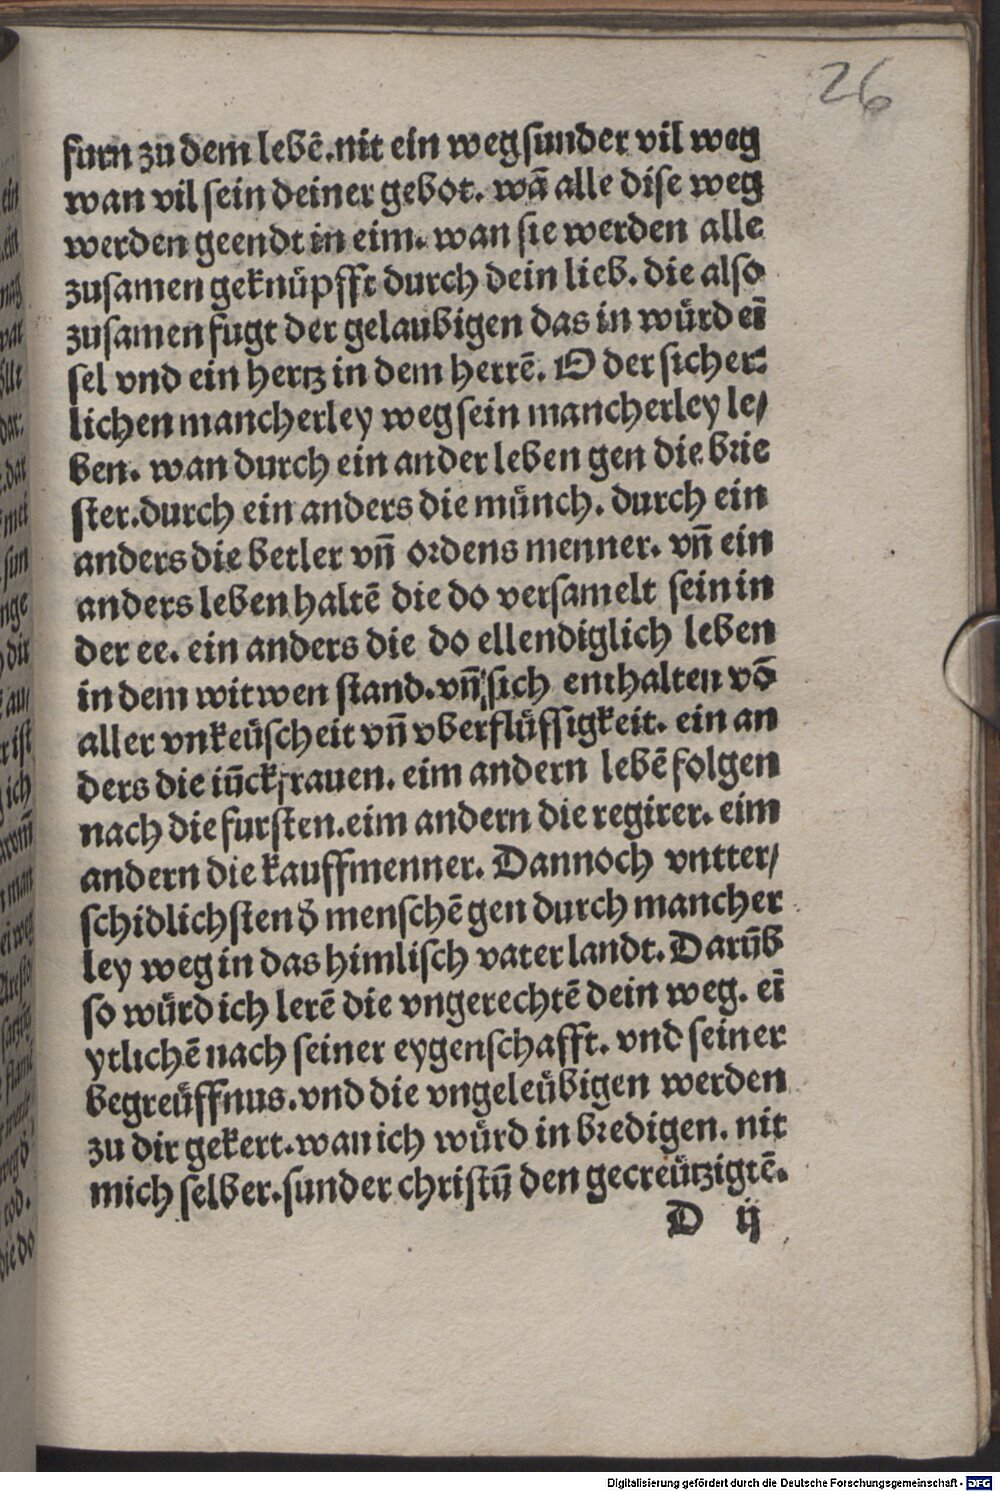 26
furn zu dem lebē.nit ein weg sunder vil weg
wan vil sein deiner gebot. wā alle dise weg
werden geendt in eim. wan sie werden alle
zusamen geknüpfft durch dein lieb. die also
zusamen fugt der gelaubigen das in würd eī
sel vnd ein hertz in dem herrē. O der sicher:
lichen mancherley weg sein mancherley le/
ben. wan durch ein ander leben gen die brie
ster.durch ein anders die münch. durch ein
anders die betler vn̄ ordens menner. vn̄ ein
anders leben haltē die do versamelt sein in
der ee. ein anders die do ellendiglich leben
in dem witwen stand.vn̄ sich enthalten vō
aller vnkeüscheit vn̄ vberflüssigkeit. ein an
ders die iūckfrauen. eim andern lebē folgen
nach die fursten.eim andern die regirer. eim
andern die kauffmenner. Dannoch vntter/
schidlichsten d̄ menschē gen durch mancher
ley weg in das himlisch vater landt. Darūb
so würd ich lerē die vngerechtē dein weg. eī
ytlichē nach seiner eygenschafft. vnd seiner
begreüffnus.vnd die vngeleübigen werden
zu dir gekert.wan ich würd in bredigen. nit
mich selber.sunder christū den gecreützigtē.
D ij
Digitalisierung gefördert durch die Deutsche Forschungsgemeinschaft - DFG